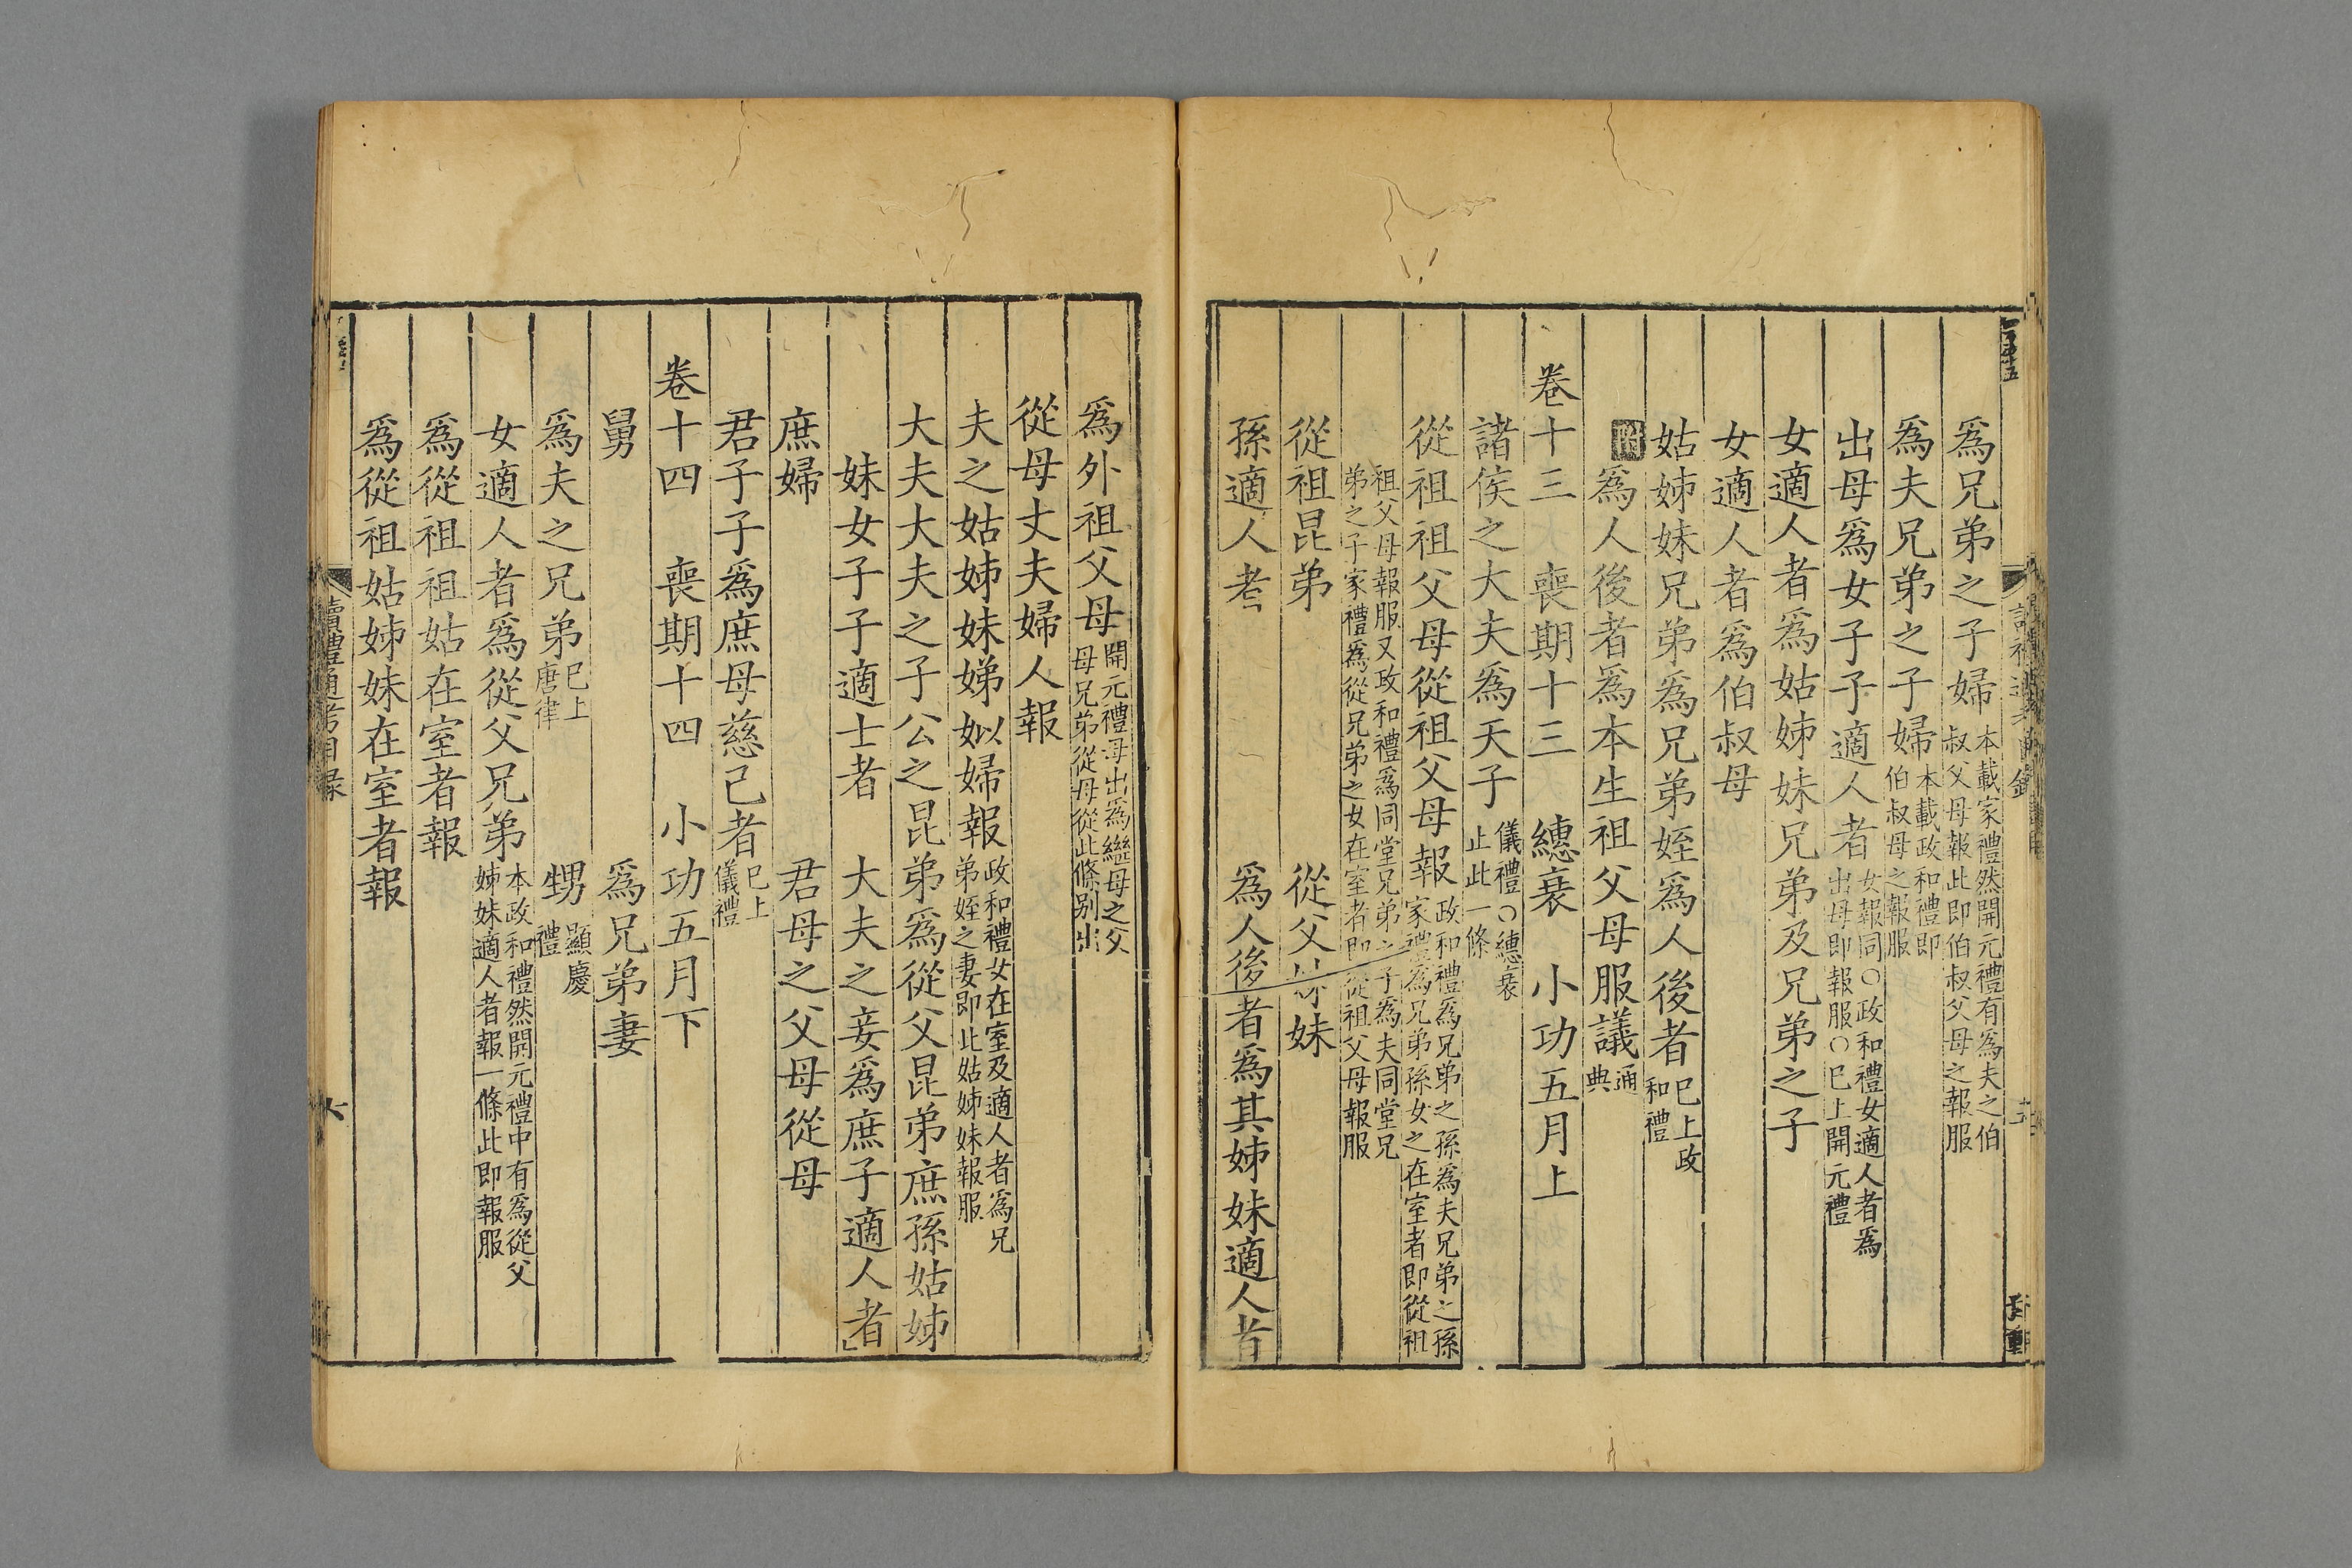 爲兄弟之子婦本載家禮然開元禮有爲夫之伯叔父母報此即伯叔父母之報服
爲夫兄弟之子婦本載政和禮即伯叔母之報服
出母爲女子子適人者女報同○政和禮女適人者爲出母即報服○已上開元禮
女適人者爲姑姊妹兄弟及兄弟之子
女適人者爲伯叔母
姑姊妹兄弟爲兄弟姪爲人後者已上政和禮
附爲人後者爲本生祖父母服議通典
卷十三 喪期十三 繐衰 小功五月上
諸侯之大夫爲天子儀禮○繐衰止此一條
從祖祖父母從祖父母報政和禮爲兄弟之孫爲夫兄弟之孫家禮爲兄弟孫女之在室者即從祖
祖父母報服又政和禮爲同堂兄弟之子爲夫同堂兄弟之子家禮爲從兄弟之女在室者即從祖父母報服
從祖昆弟 從父姊妹
孫適人者 爲人後者爲其姊妹適人者
爲外祖父母開元禮母出爲繼母之父母兄弟從母從此條別出
從母丈夫婦人報
夫之姑姊妹娣姒婦報政和禮女在室及適人者爲兄弟姪之妻即此姑姊妹報服
大夫大夫之子公之昆弟爲從父昆弟庶孫姑姊
妹女子子適士者 大夫之妾爲庶子適人者
庶婦 君母之父母從母
君子子爲庶母慈己者已上儀禮
卷十四 喪期十四 小功五月下
舅 爲兄弟妻
爲夫之兄弟已上唐律 甥顯慶禮
女適人者爲從父兄弟本政和禮然開元禮中有爲從父姊妹適人者報一條此即報服
爲從祖祖姑在室者報
爲從祖姑姊妹在室者報
讀禮通考目錄 六